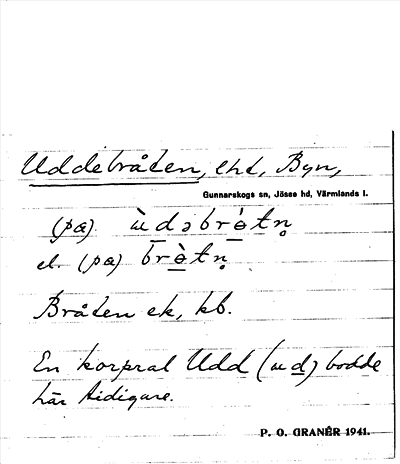 Uddebråten, lht, Byn,
Gunnarskogs sn, Jösse hd, Värmlands l.
(pæ) ẁdəbrótn̥
el. (pæ) bròtn̥
Bråten ek, kb.
En korpral Udd (ud) bodde
här tidigare.
P. O. GRANÉR 1941.